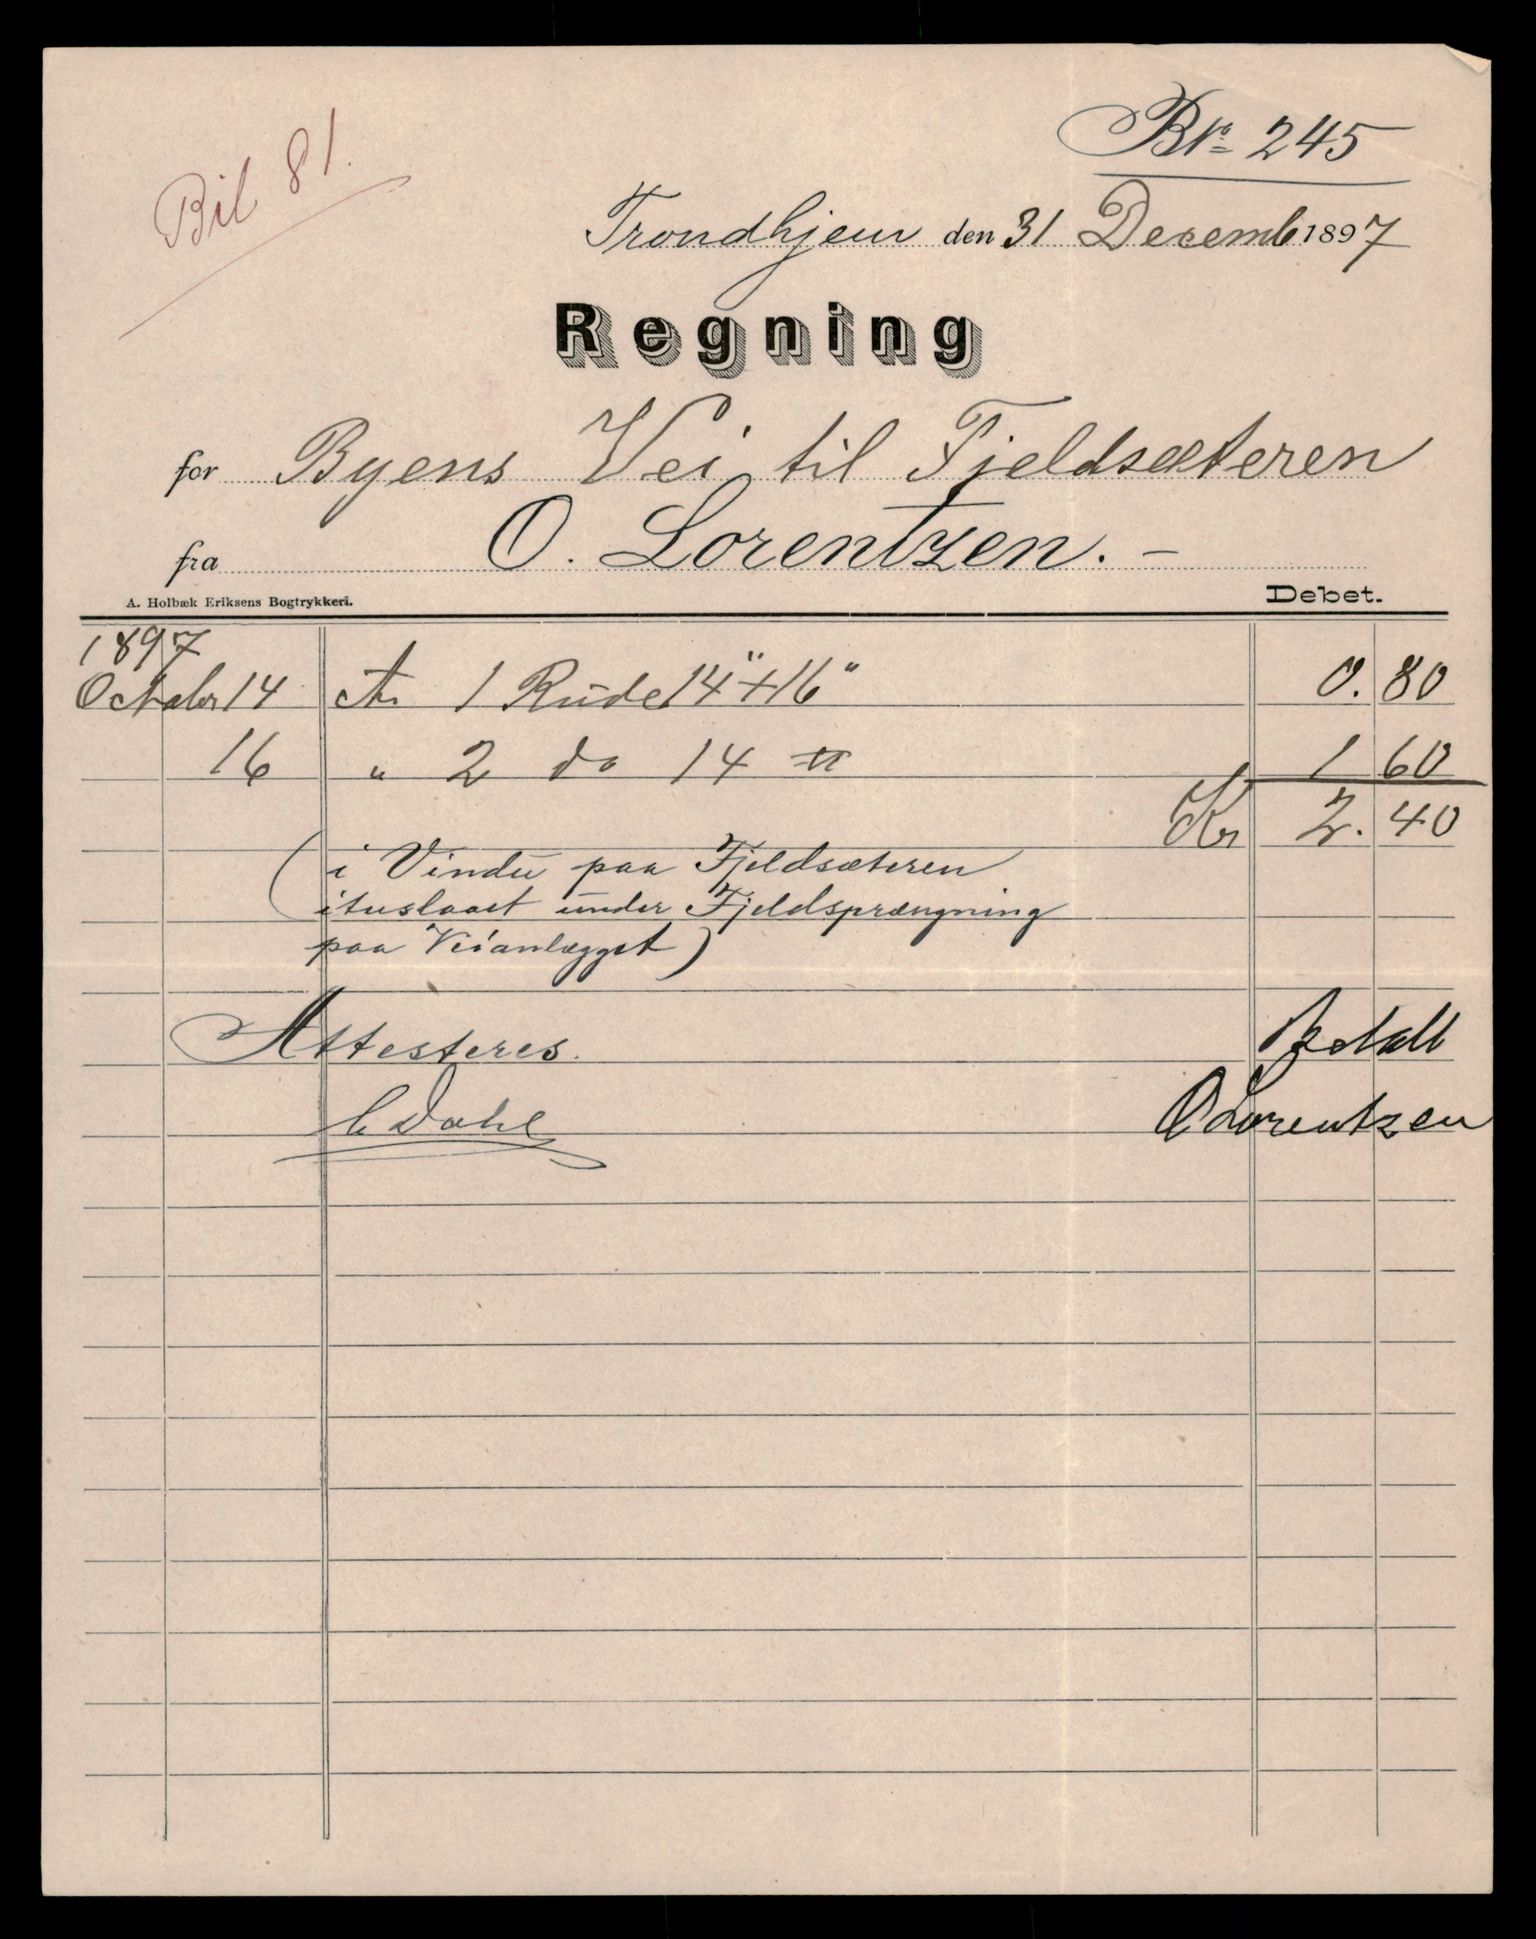 Bil 81.
Br 245
Trondhjem den 31 Decemb 1897
Regning
for Byens Vei til Fjeldsæteren
fra O. Lorentzen. –
A. Holbæk Eriksens Bogtrykkeri. Debet.
1897
October 14 At 1 Rude 14" + 16" 0. 80
16 " 2 do 14 " 1 60
Kr 2. 40
(i Vindu paa Fjeldsæteren
ituslaaet under Fjeldsprængning
paa Veianlægget)
Attesteres. Betalt
C Dahl O Lorentzen